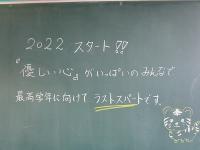 2022 スタート!!
『優しい心』がいっぱいのみんなで
最高学年に向けて ラストスパートです。